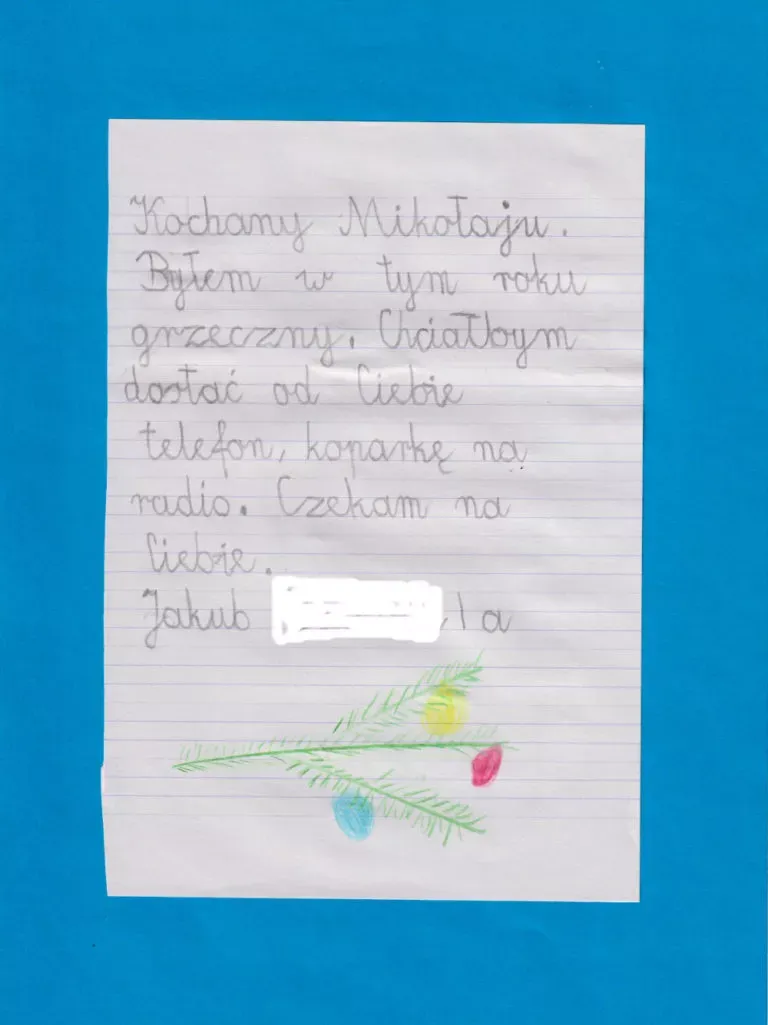 Kochany Mikołaju.
Byłem w tym roku
grzeczny. Chciałbym
dostać od Ciebie
telefon, koparkę na
radio. Czekam na
Ciebie.
Jakub 1a